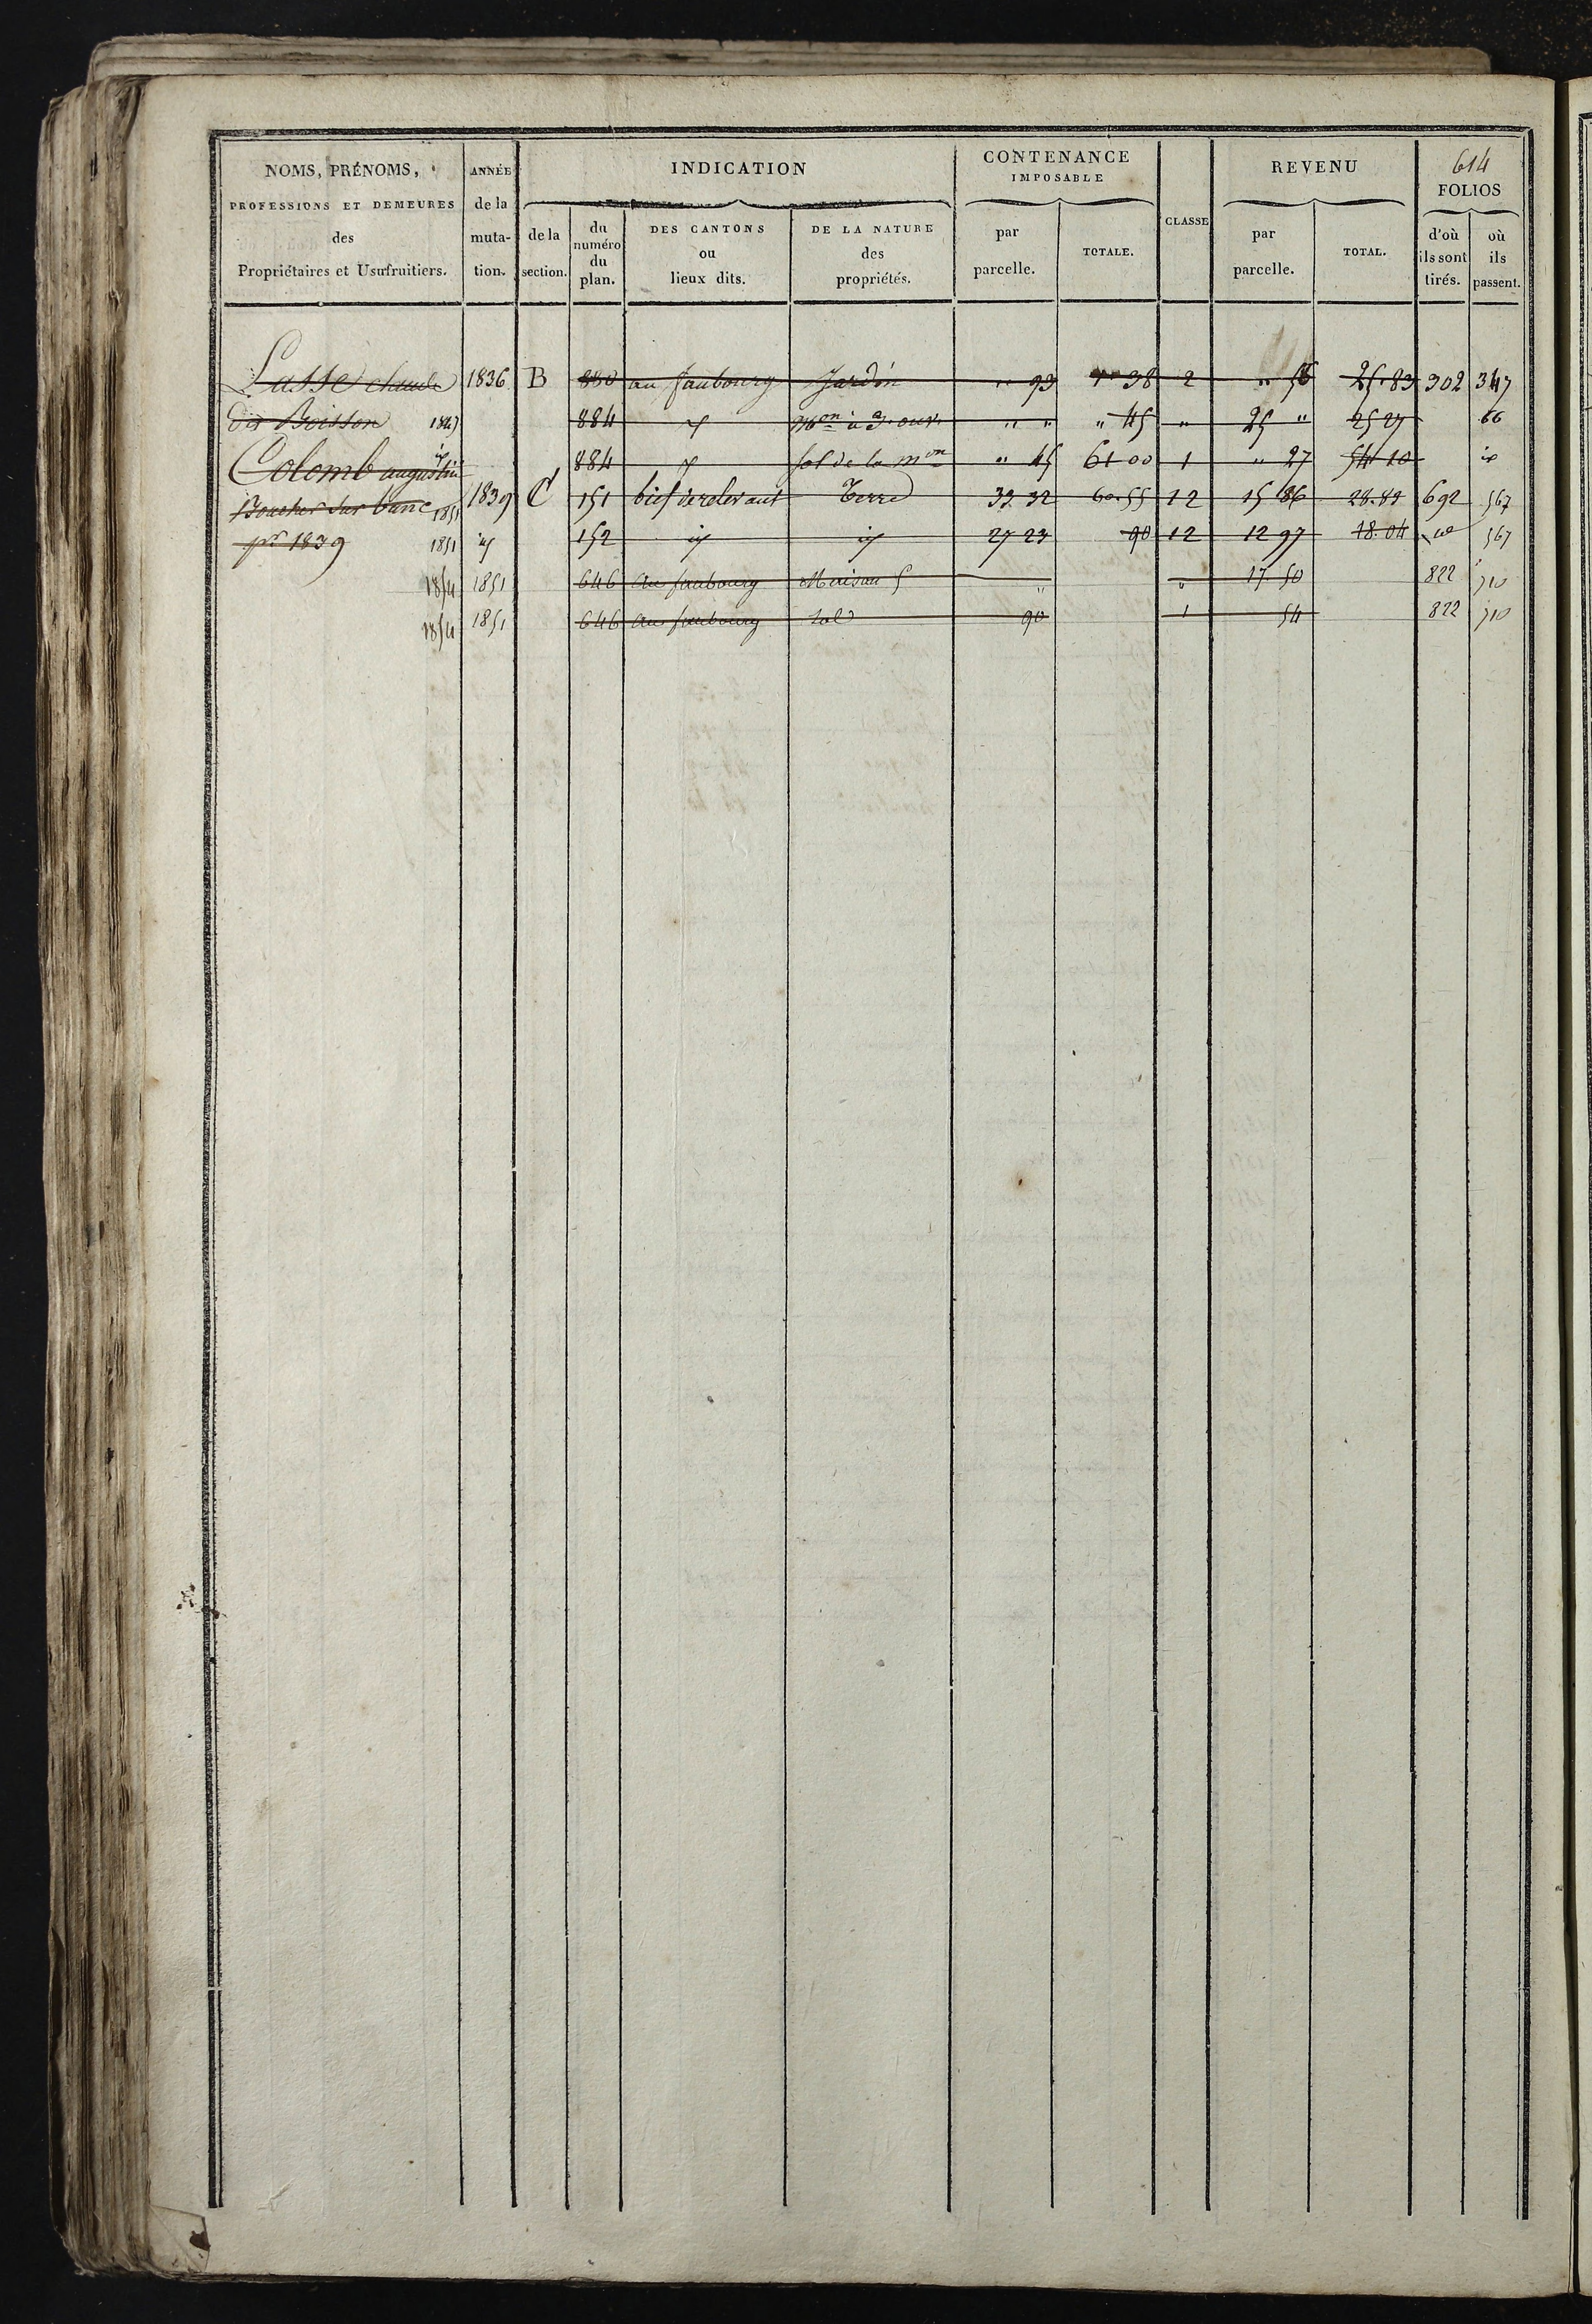 614
NOMS, PRÉNOMS, PROFESSIONS ET DEMEURES des Propriétaires et Usufruitiers.
ANNÉE de la mutation.
INDICATION
de la section.
du numéro du plan.
DES CANTONS ou lieux dits.
DE LA NATURE des propriétés.
CONTENANCE IMPOSABLE
par parcelle.
TOTALE.
CLASSE
REVENU
par parcelle.
TOTAL.
FOLIOS
d'où ils sont tirés.
où ils passent.
Lasse claude 1836 B 880 au faubourg Jardin " 93 1 38 2 " 56 25.83 302 347
dit Boisson 1847 884 " " " 45 " 25 " 25 27 66
Colomb augustin 884 sol de la mon " 45 61 00 1 " 27 54 10
Boucher sur 1851 1839 C 151 Terre 33 32 60.55 12 15 86 28.89 692 567
pr 1839 1851 152 27 23 90 12 12 97 18.04 567
1854 1851 646 au faubourg Maison " " 17 50 822 510
1854 1851 646 au faubourg Sol 90 1 54 822 510